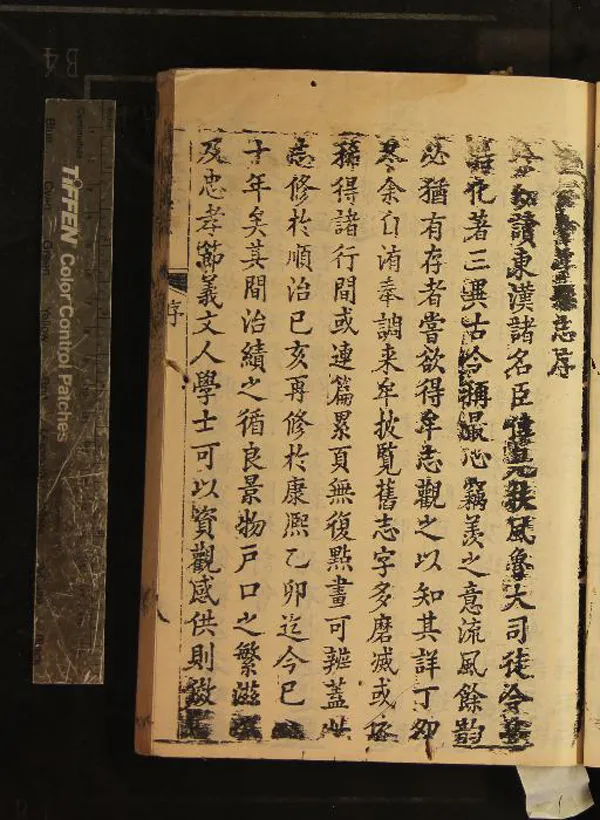 志序
讀東漢諸名臣扶風魯大司徒令
化著三異古今稱最心竊羨之意流風餘韵
必猶有存者嘗欲得牟志觀之以知其詳丁卯
冬余自洧奉調來牟披覽舊志字多磨滅或
稱得諸行間或連篇累頁無復點畫可辨蓋此
志修於順治己亥再修於康熙乙卯迄今已
十年矣其間治績之循良景物戶口之繁滋
及忠孝節義文人學士可以資觀感供則傚
序
TIFFEN Color Control Patches
B4